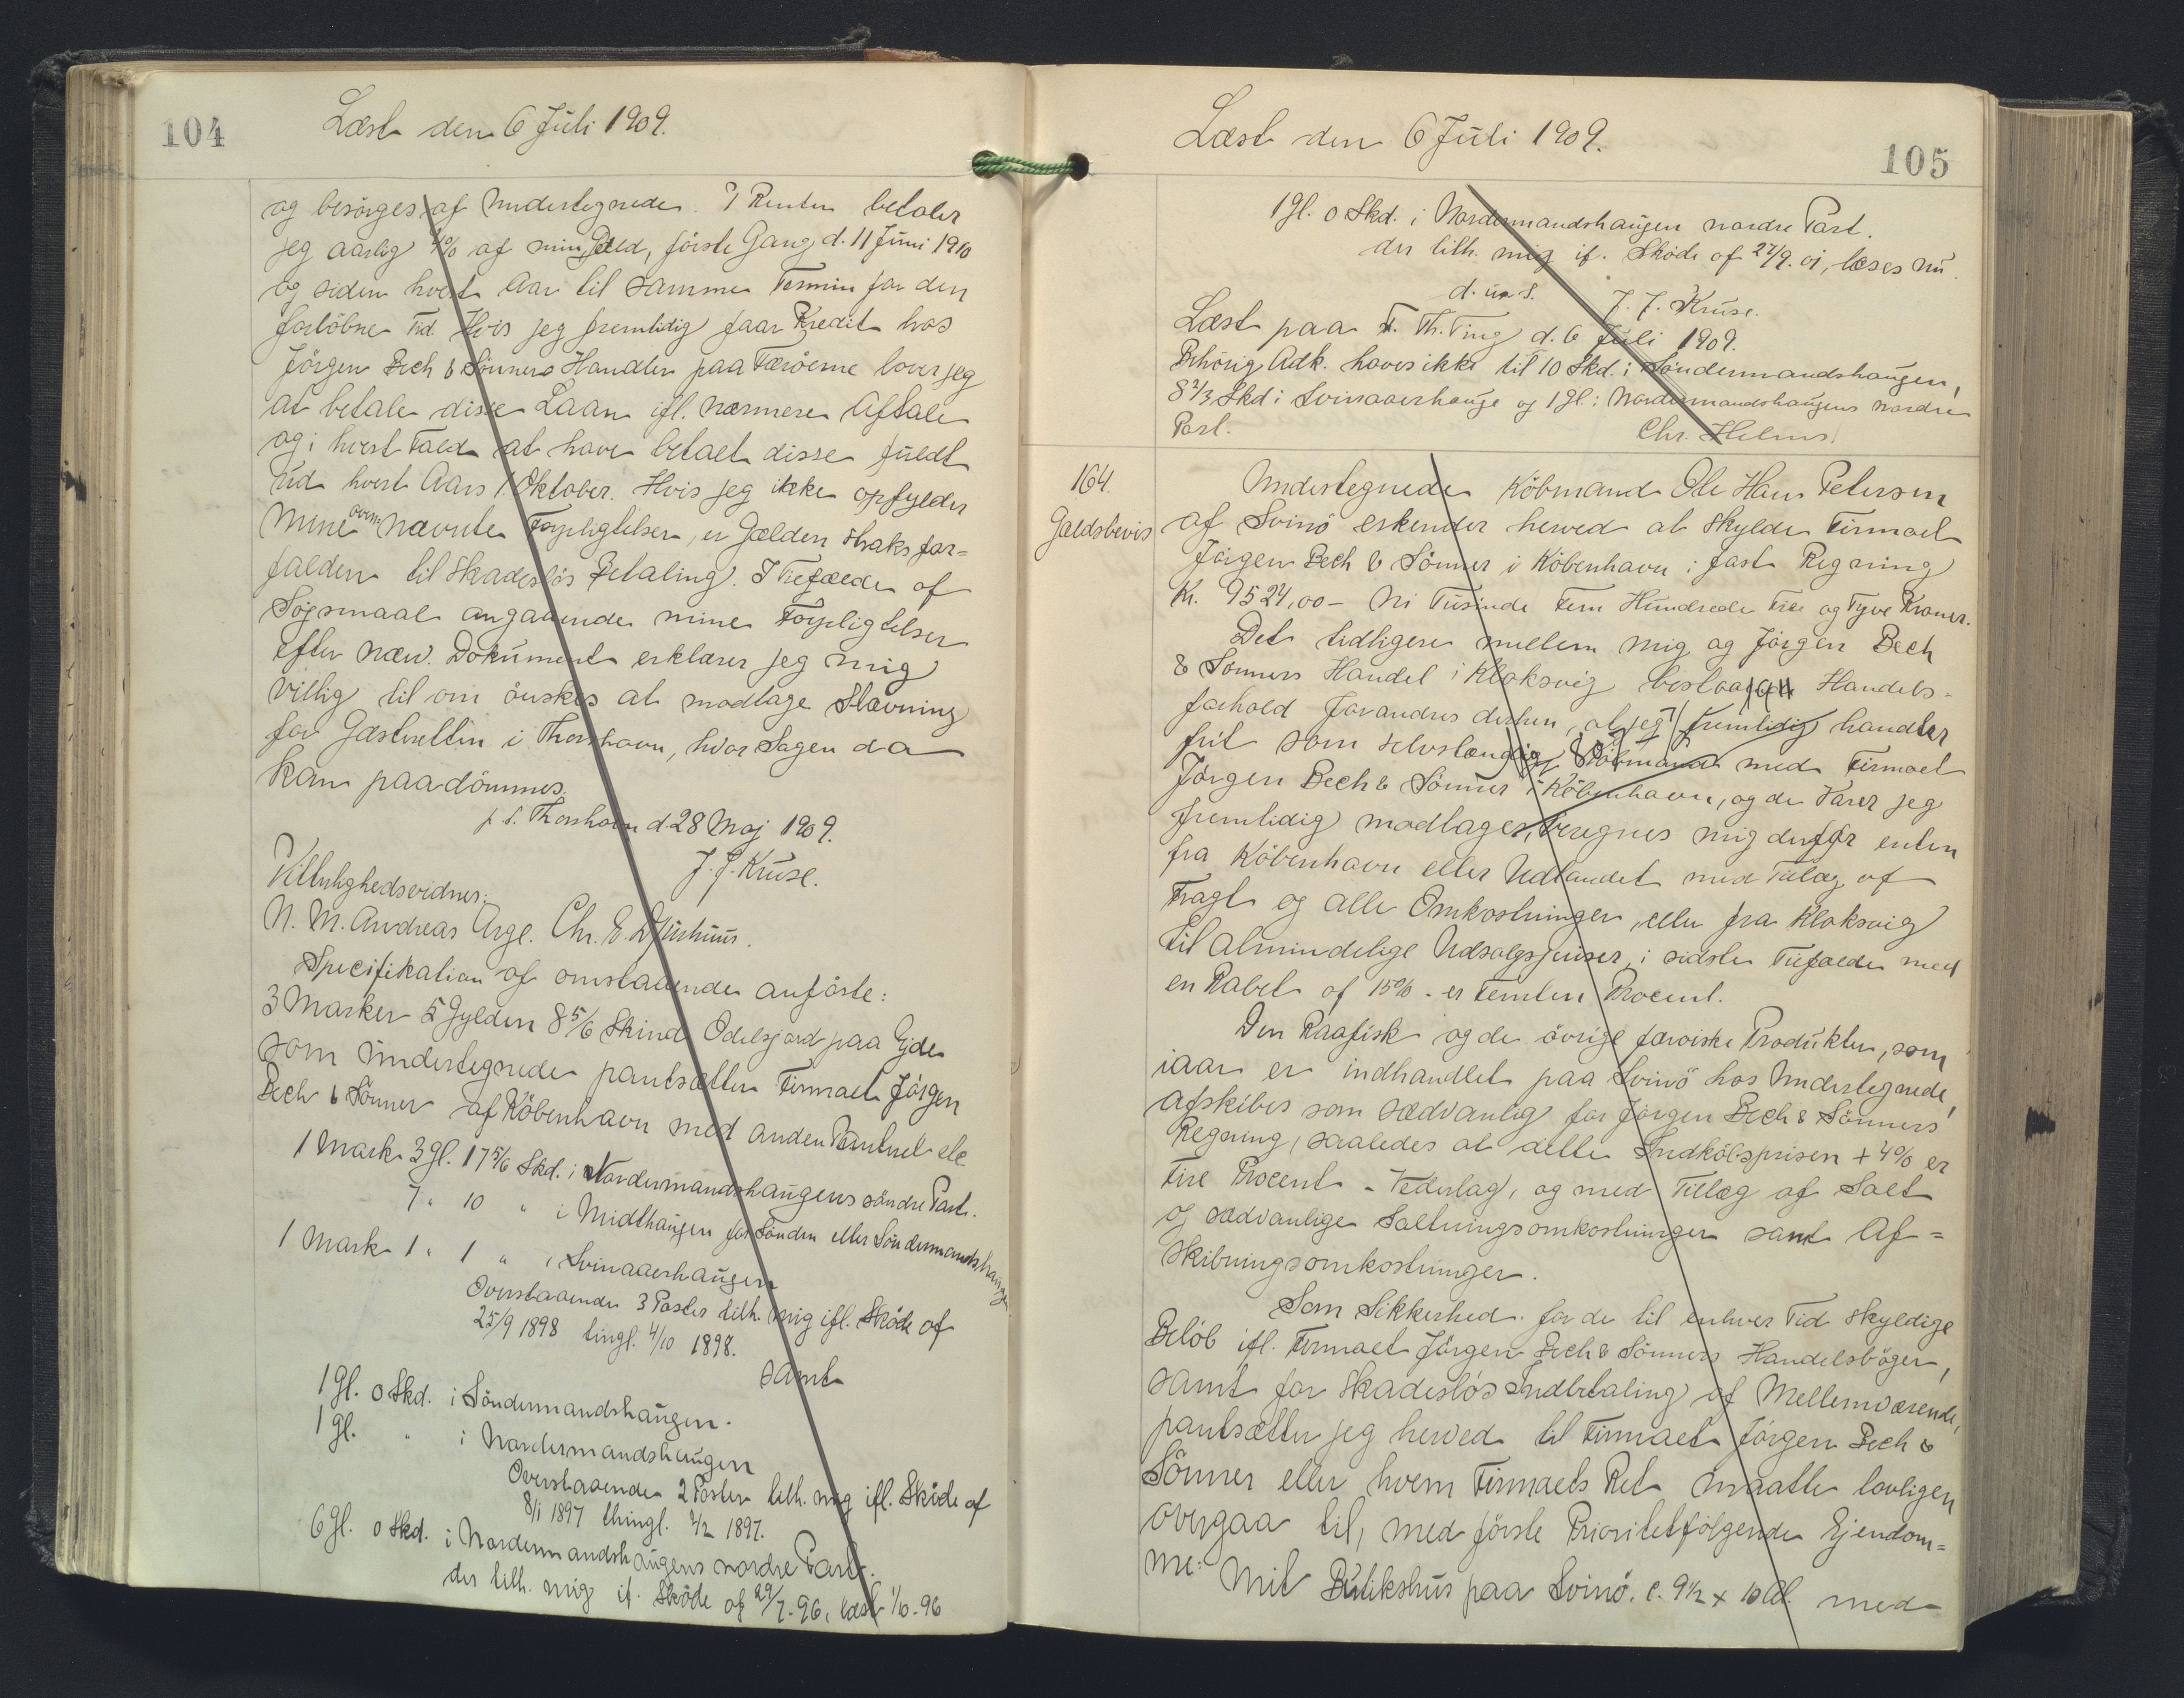 104
Læst den 6 Juli 1909.
og besörges af Undertegnede. I Renten betaler
jeg aarlig 4% af min Gæld, förste Gang d. 11 Juni 1910
og siden hvert Aar til samme Termin for den
forlöbne Tid. Hvis jeg fremtidig faar Kredit hos
Jörgen Bech & Sönners Handler paa Færöerne lover jeg
at betale disse Laan ifl. nærmere Aftale
og i hvert Fald at have betalt disse fuldt
ud hvert Aars 1. Oktober. Hvis jeg ikke opfylder
mine ovennævnte Forpligtelser, er Gælden straks for=
falden til skadeslös Betaling. I Tilfælde af
Sögsmaal angaaende mine Forpligtelser
efter nærv. Dokument erklærer jeg mig
villig til om önskes at modtage Stævning
for Gæsteretten i Thorshavn, hvor Sagen da
kan paadömmes.
p. t. Thorshavn d. 28 Maj 1909.
J. J. Kruse.
Vitterlighedsvidner:
N. M. Andreas Arge. Chr. E. Djurhuus.
Specifikation af omstaaende anförte:
3 Marker 5 Gylden 8 5/6 Skind Odelsjord paa Ejde
som undertegnede pantsætter Firmaet Jörgen
Bech & Sönner af København med anden Panteret etc
1 Mark 3 gl. 17 5/6 Skd. i Nordermandshaugens söndre Part.
7 " 10 " i Midthaugen for Sönden eller Söndermandshaugen
1 Mark 1 " 1 " i Svinaaerhaugen
Overstaaende 3 Poster tilh. mig ifl. Sköde af
25/9 1898 tingl. 4/10 1898.
samt
1 gl. 0 Skd. i Söndermandshaugen.
1 gl. " i Nordermandshaugen
Overstaaende 2 Poster tilh. mig ifl. Sköde af
8/1 1897 thingl. 2/2 1897.
6 gl. 0 Skd. i Nordermandshaugens nordre Part.
der tilh. mig if. Sköde af 29/7-96, læst 1/10-96
Læst den 6 Juli 1909.
105
1 gl. 0 Skd. i Nordermandshaugen nordre Part.
der tilh. mig if. Sköde af 27/9. 01, læses nu
d. u. s. J. J. Kruse.
Læst paa F. Th. Ting d. 6 Juli 1909.
Behörig Adk. haves ikke til 10 Skd. i Söndermandshaugen,
8 2/3 Skd i Svinaaerhauge og 1 gl. i Nordermandshaugens nordre
Part. Chr. Helms.
164.
Gældsbevis
Undertegnede Köbmand Ole Hans Petersen
af Svinö erkender herved at skylde Firmaet
Jörgen Bech & Sönner i Köbenhavn i fast Regning
Kr. 9524,00 - Ni Tusinde Fem Hundrede Fire og Tyve Kroner.
Det tidligere mellem mig og Jörgen Bech
& Sönners Handel i Klaksvig bestaaende Handels-
forhold forandres derhen, at jeg fremtidig handler
frit som selvstændig Köbmand med Firmaet
Jörgen Bech & Sönner i Köbenhavn, og de Varer jeg
fremtidig modtager, beregnes mig derfor enten
fra Köbenhavn eller Udlandet med Tillæg af
Fragt og alle Omkostninger, eller fra Klaksvig
til almindelige Udsalgspriser, i sidste Tilfælde med
en Rabet af 15% - er Femten Procent.
Den Raafisk og de övrige færoiske Produkter, som
iaar er indhandlet paa Svinö hos Undertegnede,
afskibes som sædvanlig for Jörgen Bech & Sönners
Regning, saaledes at dette Indköbsprisen + 4% er
Fire Procent - Vederlag, og med Tillæg af Salt
og sædvanlige Saltningsomkostninger samt Af=
skibningsomkostninger.
Som Sikkerhed for de til enhver Tid skyldige
Belöb ifl. Firmaet Jörgen Bech & Sönners Handelsböger,
samt for skadeslös Indbetaling af Mellemværende,
pantsætter jeg herved til Firmaet Jörgen Bech &
Sönner eller hvem Firmaets Ret maatte lovligen
overgaa til, med förste Prioritet fölgende Ejendom=
me: Mit Butikshus paa Svinö. c. 9 1/2 x 10 Al. med